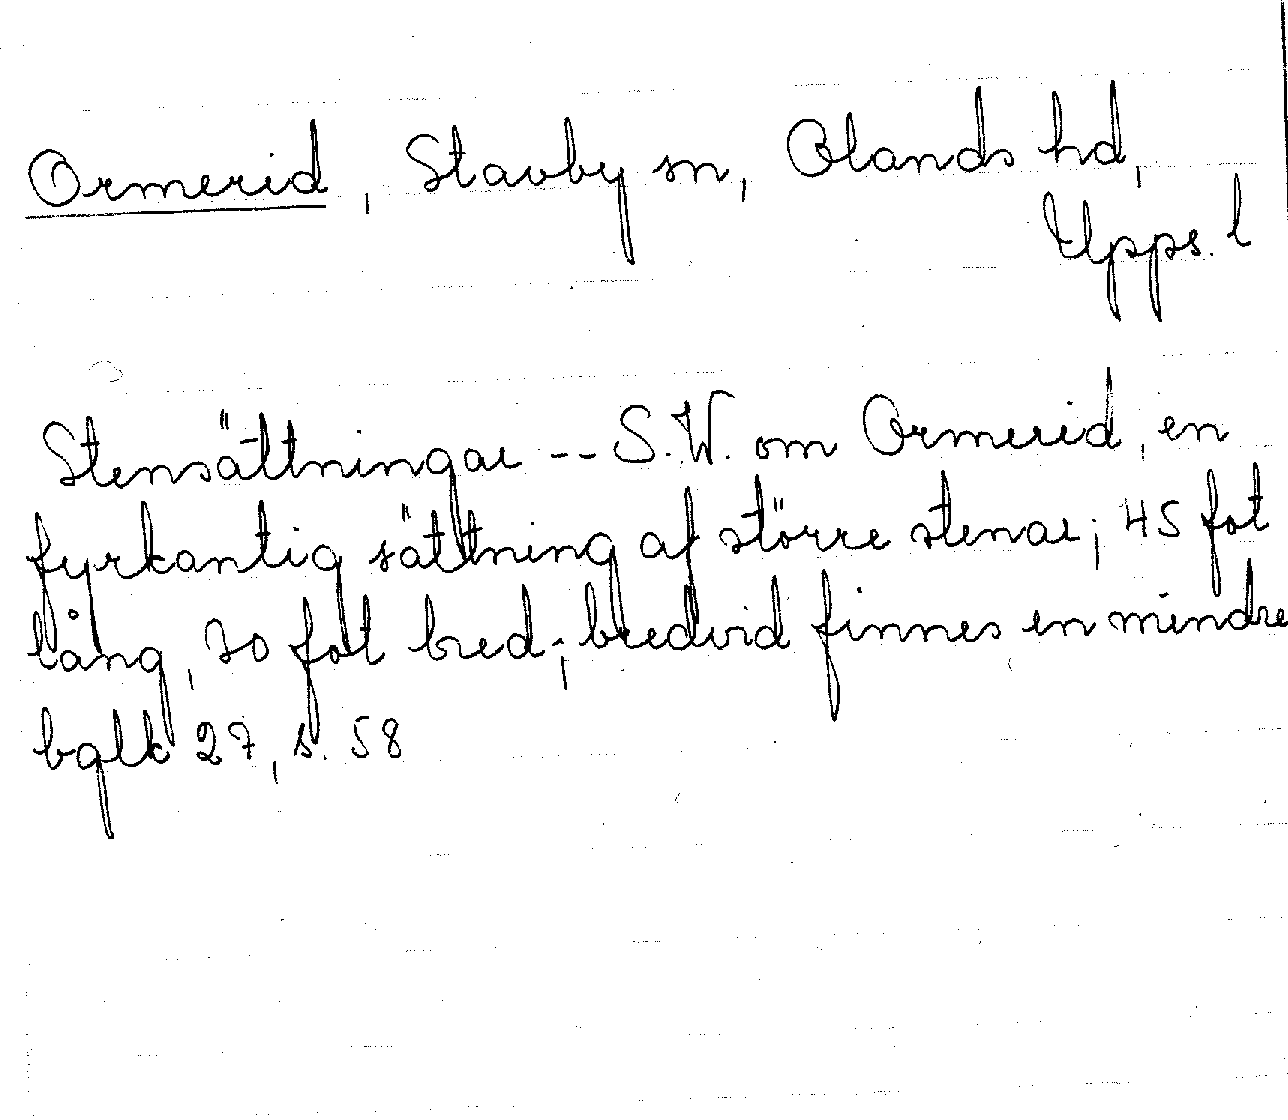 Ormerid, Stavby sn, Olands hd,
Upps. l
Stensättningar -- S.W. om Ormerid, en
fyrkantig sättning af större stenar; 45 fot
lång, 30 fot bred; bredvid finnes en mindre
bglk 27, s. 58